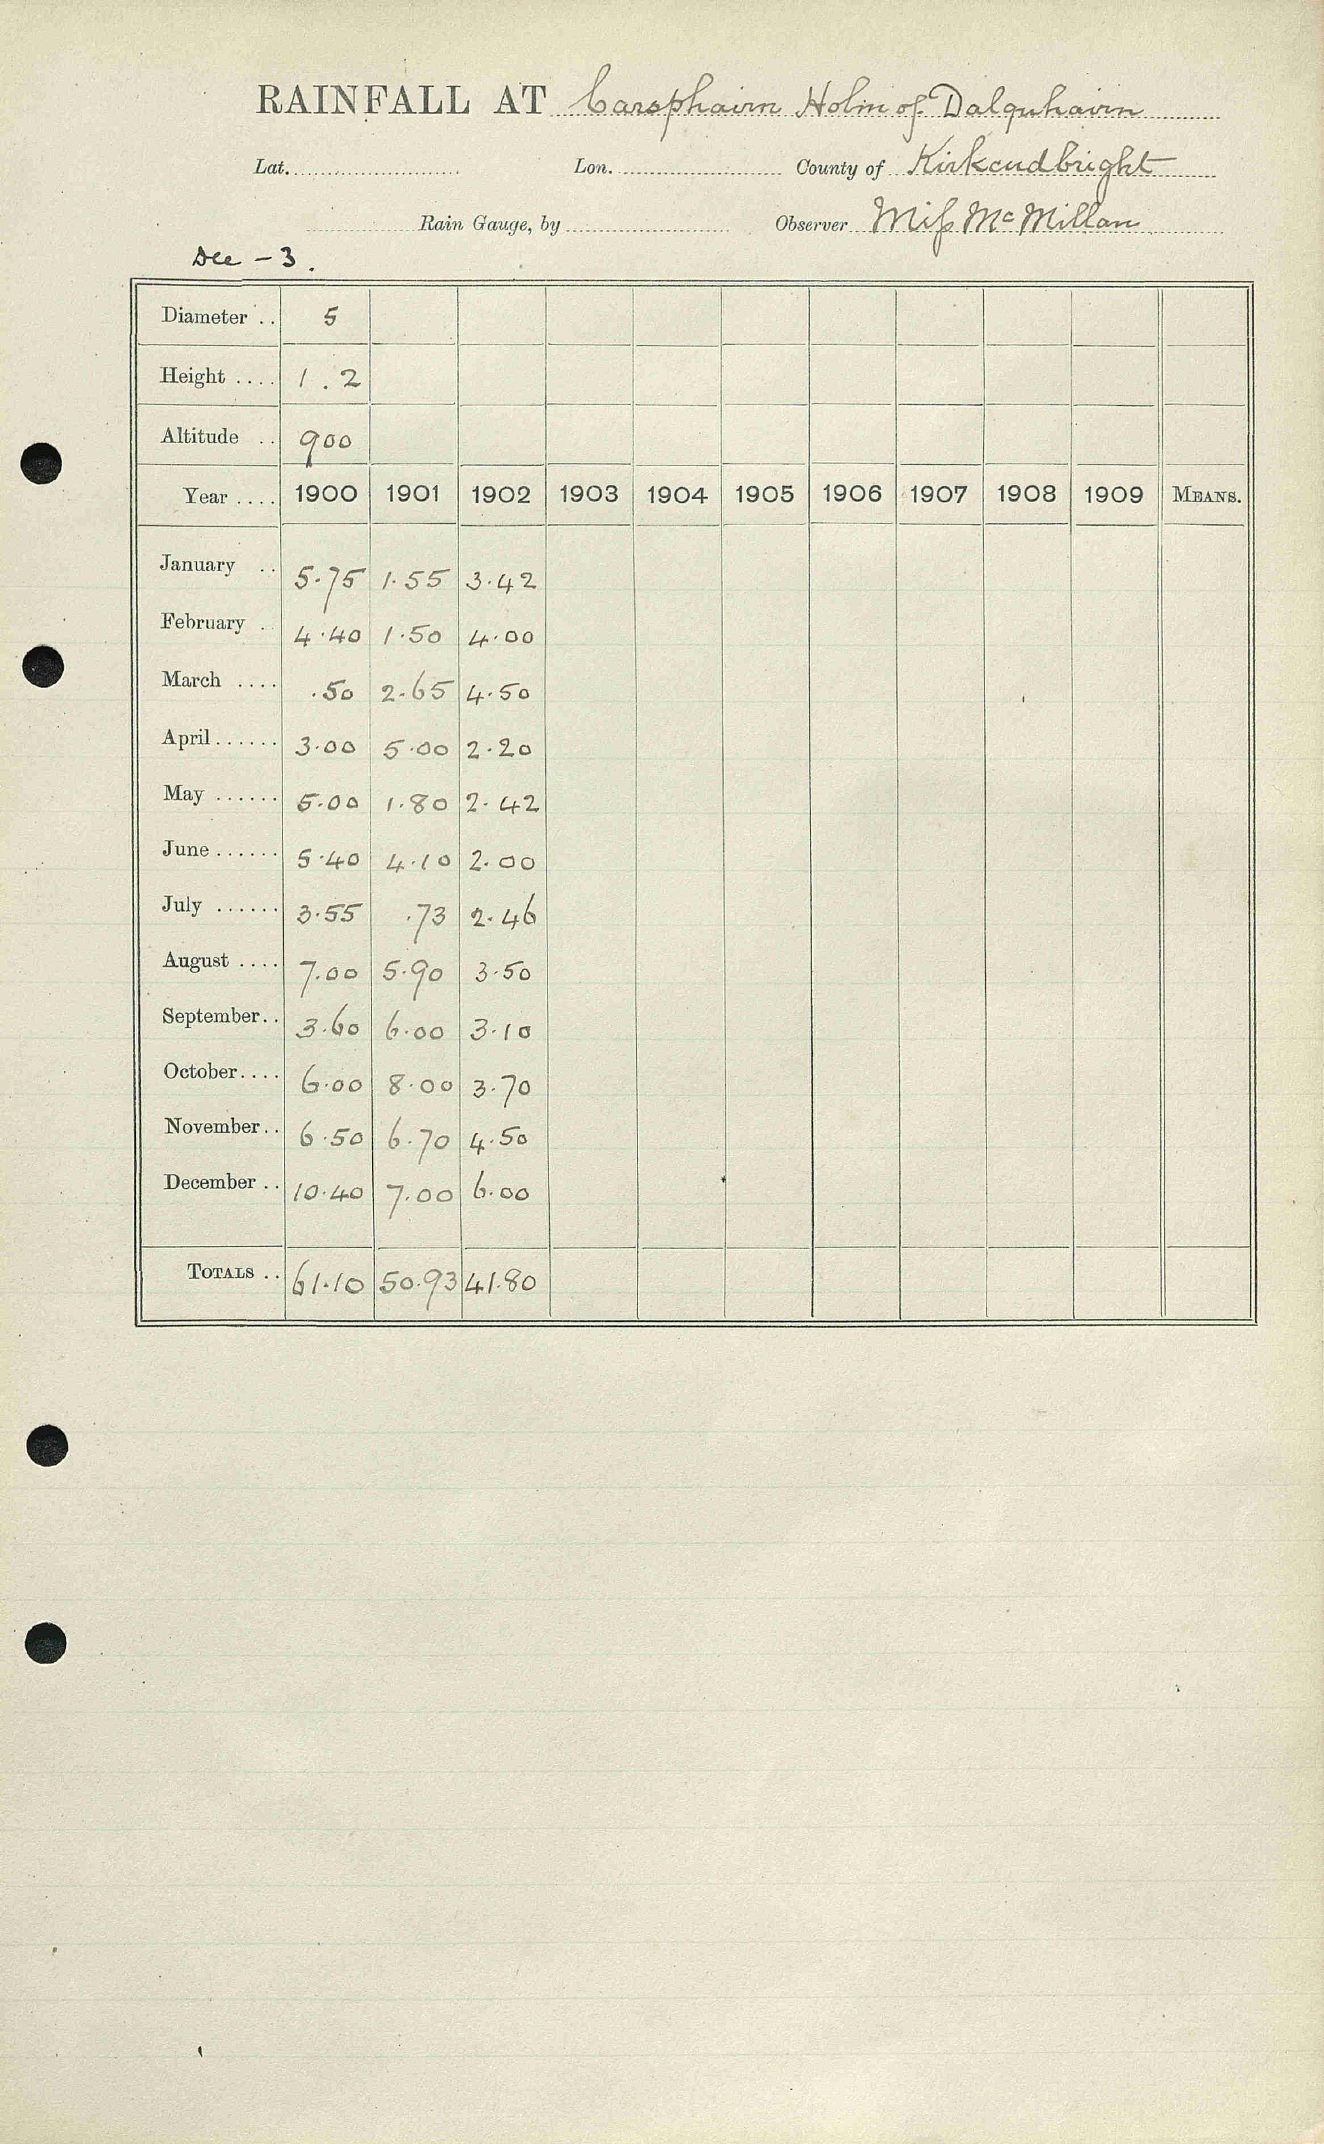 RAINFALL AT Carsphairn Holm of Dalquhairn
Lat. Lon. County of Kirkcudbright
Rain Gauge, by Observer Miss McMillan
Dec - 3.
Diameter .. 5
Height .... 1.2
Altitude .. 900
Year .... 1900 1901 1902 1903 1904 1905 1906 1907 1908 1909 MEANS.
January .. 5.75 1.55 3.42
February . 4.40 1.50 4.00
March .... .50 2.65 4.50
April...... 3.00 5.00 2.20
May ...... 5.00 1.80 2.42
June...... 5.40 4.10 2.00
July ...... 3.55 .73 2.46
August .... 7.00 5.90 3.50
September.. 3.60 6.00 3.10
October.... 6.00 8.00 3.70
November.. 6.50 6.70 4.50
December .. 10.40 7.00 6.00
TOTALS .. 61.10 50.93 41.80